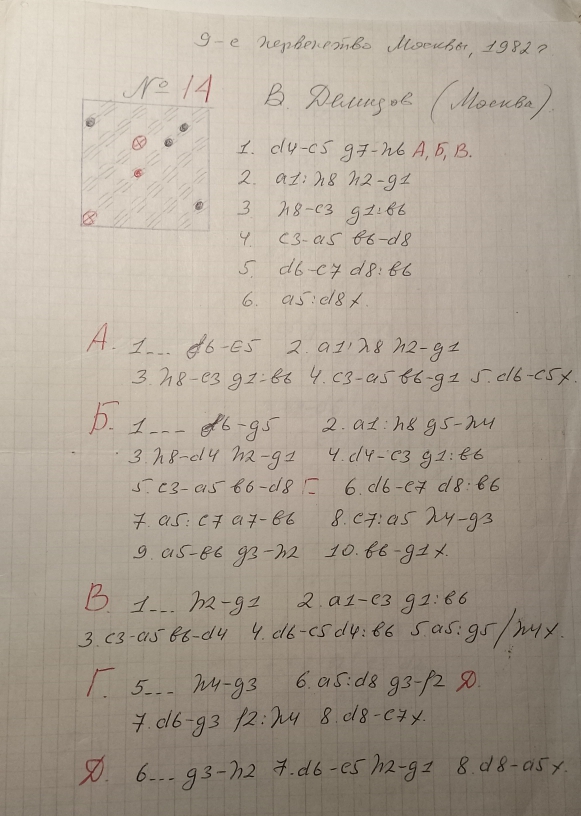 9-е первенство Москвы, 1982г
№ 14
В. Демидов (Москва).
1. d4-c5 g7-h6 А, Б, В.
2. a1:h8 h2-g1
3. h8-c3 g1:b6
4. c3-a5 b6-d8
5. d6-c7 d8:b6
6. a5:d8 х.
А. 1... f6-e5 2. a1:h8 h2-g1
3. h8-c3 g1:b6 4. c3-a5 b6-g1 5. d6-c5x.
Б. 1... f6-g5 2. a1:h8 g5-h4
3. h8-d4 h2-g1 4. d4-c3 g1:b6
5. c3-a5 b6-d8 Г 6. d6-c7 d8:b6
7. a5:c7 a7-b6 8. c7:a5 h4-g3
9. a5-b6 g3-h2 10. b6-g1x.
В. 1... h2-g1 2. a1-c3 g1:b6
3. c3-a5 b6-d4 4. d6-c5 d4:b6 5. a5:g5/h4x.
Г. 5... h4-g3 6. a5:d8 g3-f2 Д.
7. d6-g3 f2:h4 8. d8-e7x.
Д. 6... g3-h2 7. d6-e5 h2-g1 8. d8-a5x.